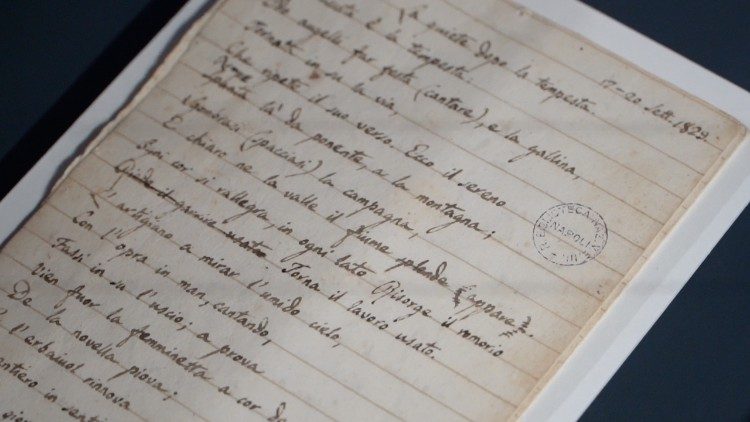 La quiete dopo la tempesta.
17-20 Sett. 1829.
è la tempesta:
augelli far festa (cantare), e la gallina,
Tornata in su la via,
Che ripete il suo verso. Ecco il sereno
Rompe là da ponente, a la montagna;
Sgombrasi la campagna,
E chiaro ne la valle il fiume splende (appare).
Ogni cor si rallegra, in ogni lato Risorge il romorio
usato. Torna il lavoro usato.
L'artigiano a mirar l'umido cielo,
Con l'opra in man, cantando,
Fassi in su l'uscio; a prova
Vien fuor la femminetta a cor de
De la novella piova;
E l'erbaiuol rinnova
entiero in senti
BIBLIOTECA
NAPOLI